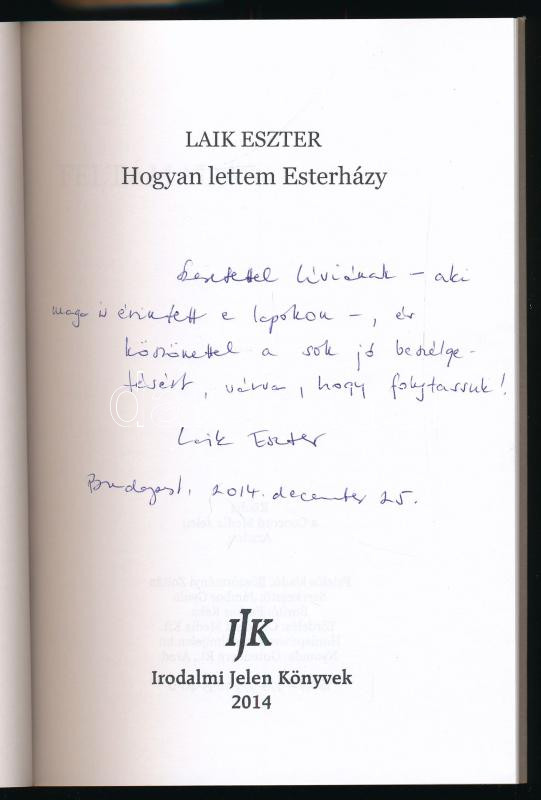 LAIK ESZTER
Hogyan lettem Esterházy
Szeretettel Líviának – aki
maga is érintett e lapokon –, és
köszönettel a sok jó beszélge-
tésért, várva, hogy folytassuk!
Laik Eszter
Budapest, 2014. december 25.
IJK
Irodalmi Jelen Könyvek
2014